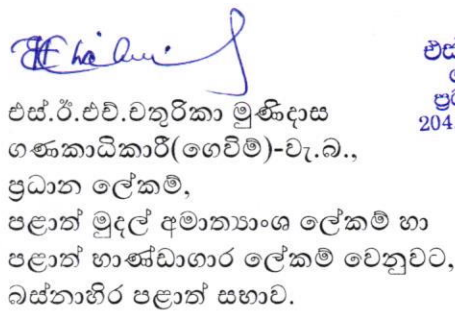 එස්.ඊ.එච්.චතුරිකා මුණිදාස
ගණකාධිකාරී(ගෙවීම්)-වැ.බ.,
ප්‍රධාන ලේකම්,
පළාත් මුදල් අමාත්‍යාංශ ලේකම් හා
පළාත් භාණ්ඩාගාර ලේකම් වෙනුවට,
බස්නාහිර පළාත් සභාව.
එස්
204